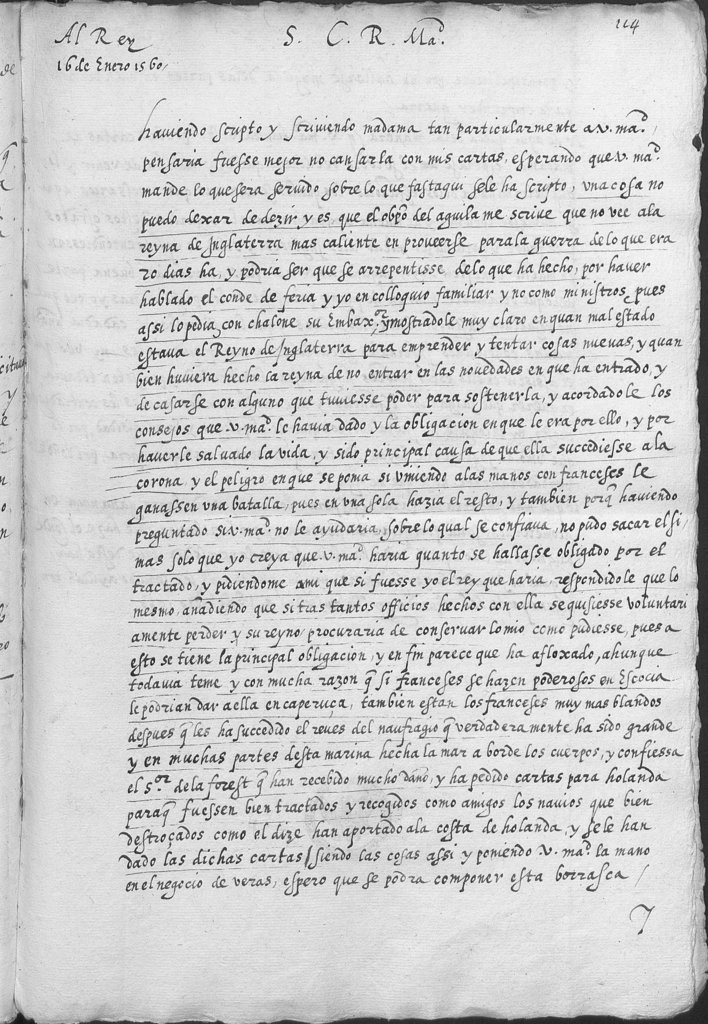 114
Al Rey
S. C. R. Ma.d
16 de Enero 1560
haviendo scripto y scriviendo madama tan particularmente a v. ma.d,
pensaria fuesse mejor no cansarla con mis cartas, esperando que v. ma.d
mande lo que sera servido sobre lo que fasta qui se le ha scripto, una cosa no
puedo dexar de dezir y es, que el obpo del aguila me scrive que no vee a la
reyna de Inglaterra mas caliente en proveerse para la guerra de lo que era
20 dias ha, y podria ser que se arrepentisse de lo que ha hecho, por haver
hablado el conde de feria y yo en colloquio familiar y no como ministros, pues
assi lo pedia, con chalone su Embax.or y mostradole muy claro en quan mal estado
estava el Reyno de Inglaterra para emprender y tentar cosas nuevas, y quan
bien huviera hecho la reyna de no entrar en las novedades en que ha entrado, y
de casarse con alguno que tuviesse poder para sostenerla, y acordadole los
consejos que v. ma.d le havia dado y la obligacion en que le era por ello, y por
haverle salvado la vida, y sido principal causa de que ella succediesse a la
corona, y el peligro en que se ponia si viniendo a las manos con franceses le
ganassen una batalla, pues en una sola hazia el resto, y tambien porq haviendo
preguntado si v. ma.d no le ayudaria, sobre lo qual se confiava, no pudo sacar el si,
mas solo que yo creya que v. ma.d haria quanto se hallasse obligado por el
tractado, y pidiendome a mi que si fuesse yo el rey que haria, respondidole que lo
mesmo, añadiendo que si tras tantos officios hechos con ella se quisiesse voluntari
amente perder y su reyno procuraria de conservar lo mio como pudiesse, pues a
esto se tiene la principal obligacion, y en fin parece que ha afloxado, ahunque
todavia teme y con mucha razon q si franceses se hazen poderosos en Escocia
le podrian dar a ella en caperuça, tambien estan los franceses muy mas blandos
despues q les ha succedido el reves del naufragio q verdaderamente ha sido grande
y en muchas partes desta marina hecha la mar a borde los cuerpos, y confiessa
el s.or de la forest q han recebido mucho daño, y ha pedido cartas para holanda
paraq fuessen bien tractados y recogidos como amigos los navios que bien
destroçados como el dize han aportado a la costa de holanda, y se le han
dado las dichas cartas / siendo las cosas assi y poniendo v. ma.d la mano
en el negocio de veras, espero que se podra componer esta borrasca /